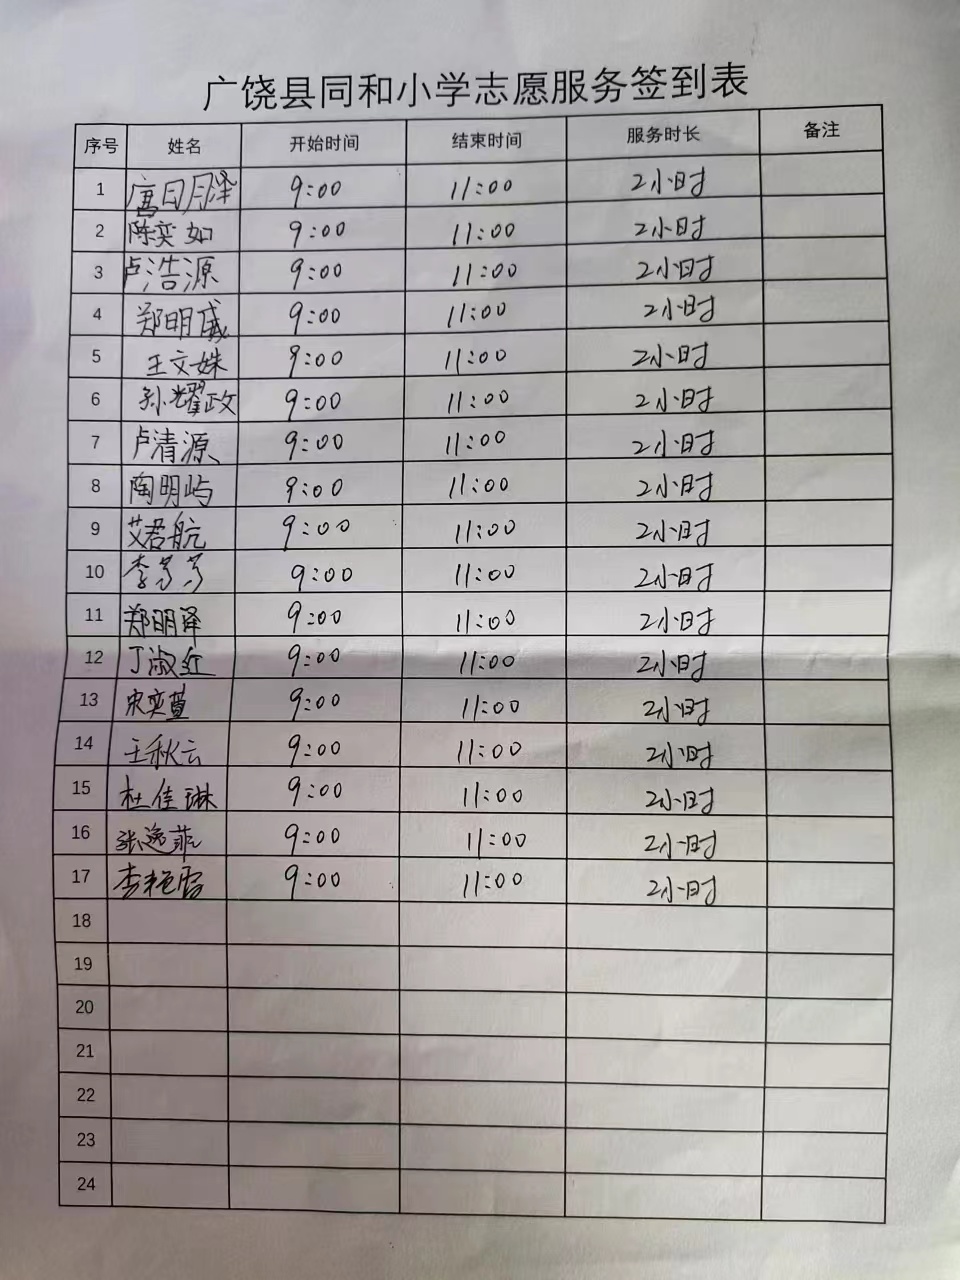 广饶县同和小学志愿服务签到表
序号 姓名 开始时间 结束时间 服务时长 备注
1 唐明泽 9:00 11:00 2小时
2 陈奕如 9:00 11:00 2小时
3 卢浩源 9:00 11:00 2小时
4 郑明威 9:00 11:00 2小时
5 王文姝 9:00 11:00 2小时
6 孙耀政 9:00 11:00 2小时
7 卢清源 9:00 11:00 2小时
8 陶明屿 9:00 11:00 2小时
9 艾君航 9:00 11:00 2小时
10 李芳芳 9:00 11:00 2小时
11 郑明泽 9:00 11:00 2小时
12 丁淑红 9:00 11:00 2小时
13 宋奕萱 9:00 11:00 2小时
14 王秋云 9:00 11:00 2小时
15 杜佳琳 9:00 11:00 2小时
16 张逸菲 9:00 11:00 2小时
17 9:00 11:00 2小时
18
19
20
21
22
23
24